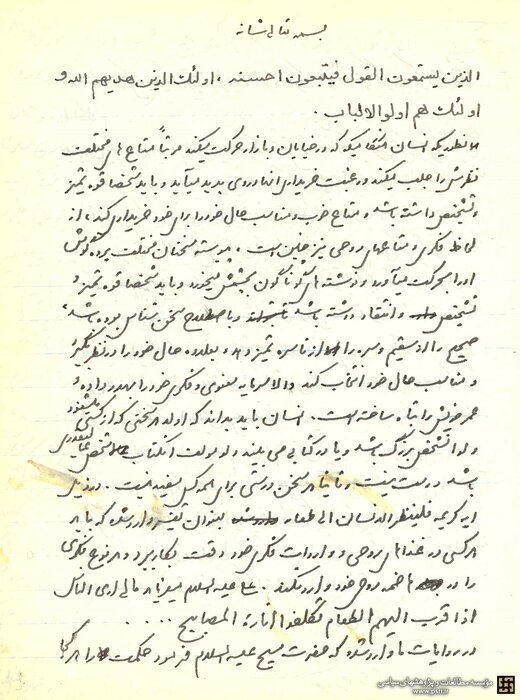 بسمه تعالی شانه
الذین یستمعون القول فیتبعون احسنه، اولئک الذین هدیهم الله و
اولئک هم اولوالالباب.
همانطوریکه انسان هنگامیکه که در خیابان و بازار حرکت میکند مرتباً متاع های مختلف
نظرش را جلب میکند و رغبت خریداری آنها در وی پدید میآید و باید شخصاً قوه تمیز
و تشخیص داشته باشد و متاع خوب و مناسب حال خود را برای خود خریداری کند، از
لحاظ فکری و متاعهای روحی نیز چنین است، پیوسته سخنان مختلف پرده گوش
او را بحرکت میآورد و نوشته های گوناگون بچشمش میخورد و باید شخصاً قوه تمیز و
تشخیص و انتقاد داشته باشد و باصطلاح سخن شناس بوده باشد،
صحیح را از سقیم و سره را از ناسره تمیز دهد و بعلاوه حال خود را در نظر بگیرد
و مناسب حال خود انتخاب کند والا سرمایه معنوی و فکری خود را بهدر داده و
عمر خویش را تباه ساخته است. انسان باید بداند که اولا هر سخنی که از کسی میشنود
ولو آنشخص بزرگ باشد و یا در کتابی می بیند ولو مولف آنکتاب شخص عالیقدری
باشد درست نیست و ثانیا هر سخن درستی برای همه کس مفید نیست. در ذیل
آیه کریمه فلینظر الانسان الی طعامه بعنوان تفسیر وارد شده که باید
هر کسی در غذاهای روحی و واردات فکری خود دقت بکار ببرد و هر نوع فکری
را در هاضمه روح خود وارد نکند. علی علیه السلام میفرماید مالی اری الناس
اذا قرب الیهم الطعام تکلفوا انارة المصابیح . . . . .
در روایات ما وارد شده که حضرت مسیح علیه السلام فرمود حکمت را هر کجا
مؤسسه مطالعات و پژوهشهای سیاسی
www.psri.ir